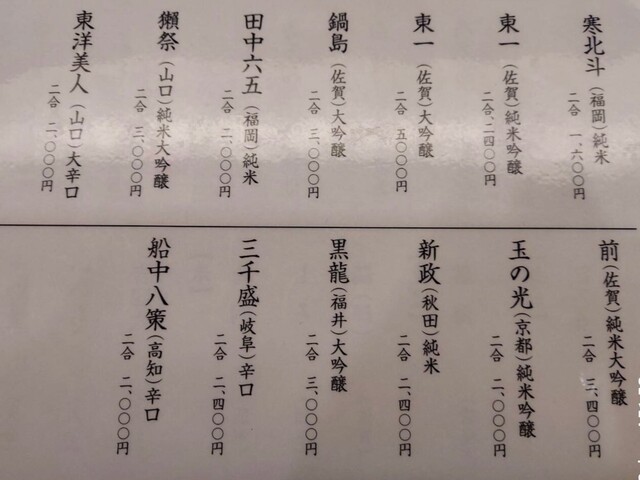 寒北斗（福岡）純米
二合 一、六〇〇円
東一（佐賀）純米吟醸
二合、二四〇〇円
東一（佐賀）大吟醸
二合 五〇〇〇円
鍋島（佐賀）大吟醸
二合 三、〇〇〇円
田中六五（福岡）純米
二合 二、〇〇〇円
獺祭（山口）純米大吟醸
二合 三、〇〇〇円
東洋美人（山口）大辛口
二合 二、〇〇〇円
前（佐賀）純米大吟醸
二合 三、四〇〇円
玉の光（京都）純米吟醸
二合 二、〇〇〇円
新政（秋田）純米
二合 二、四〇〇円
黒龍（福井）大吟醸
二合 三、〇〇〇円
三千盛（岐阜）辛口
二合 二、四〇〇円
船中八策（高知）辛口
二合 二、〇〇〇円